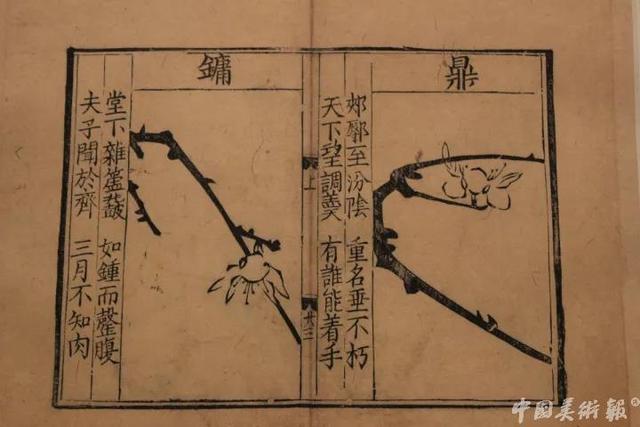 鼎
郟鄏至汾陰 重名垂不朽
天下望調羹 有誰能着手
上
廿三
鏞
堂下雜 如鍾而罄腹
夫子聞於齊 三月不知肉
中国美術報